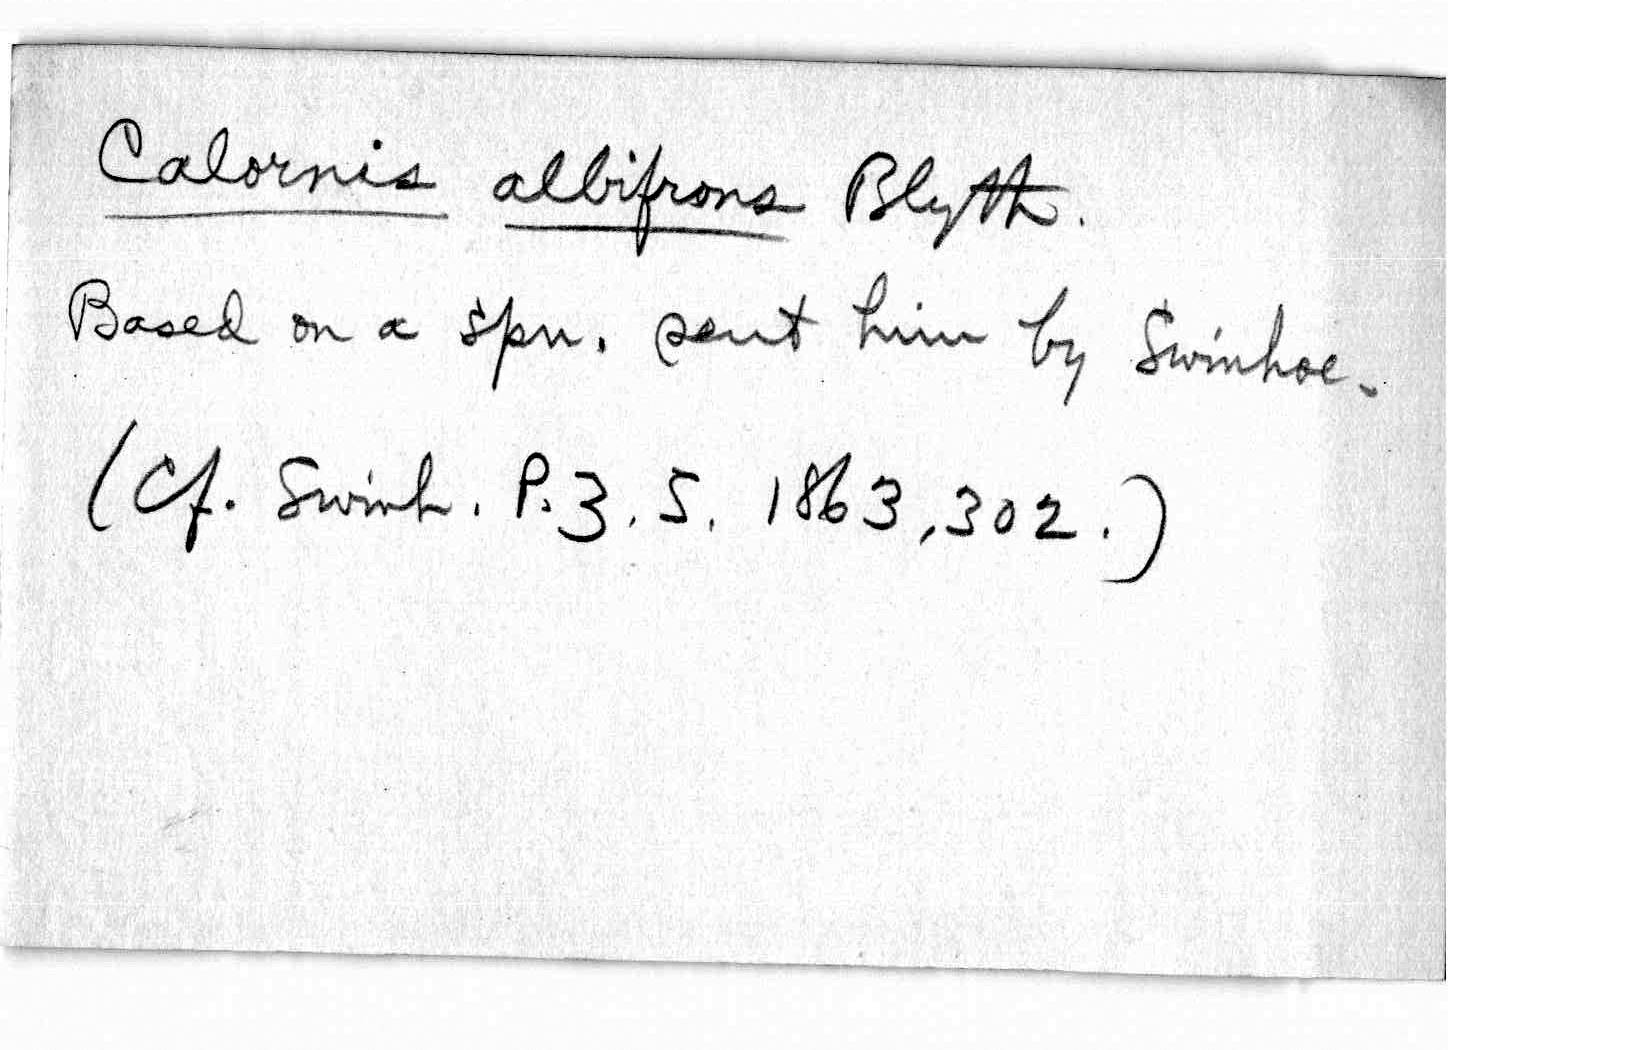 Calornis albifrons Blyth.
Based on a spn. sent him by Swinhoe.
(Cf. Swinh. P.Z.S. 1863, 302.)